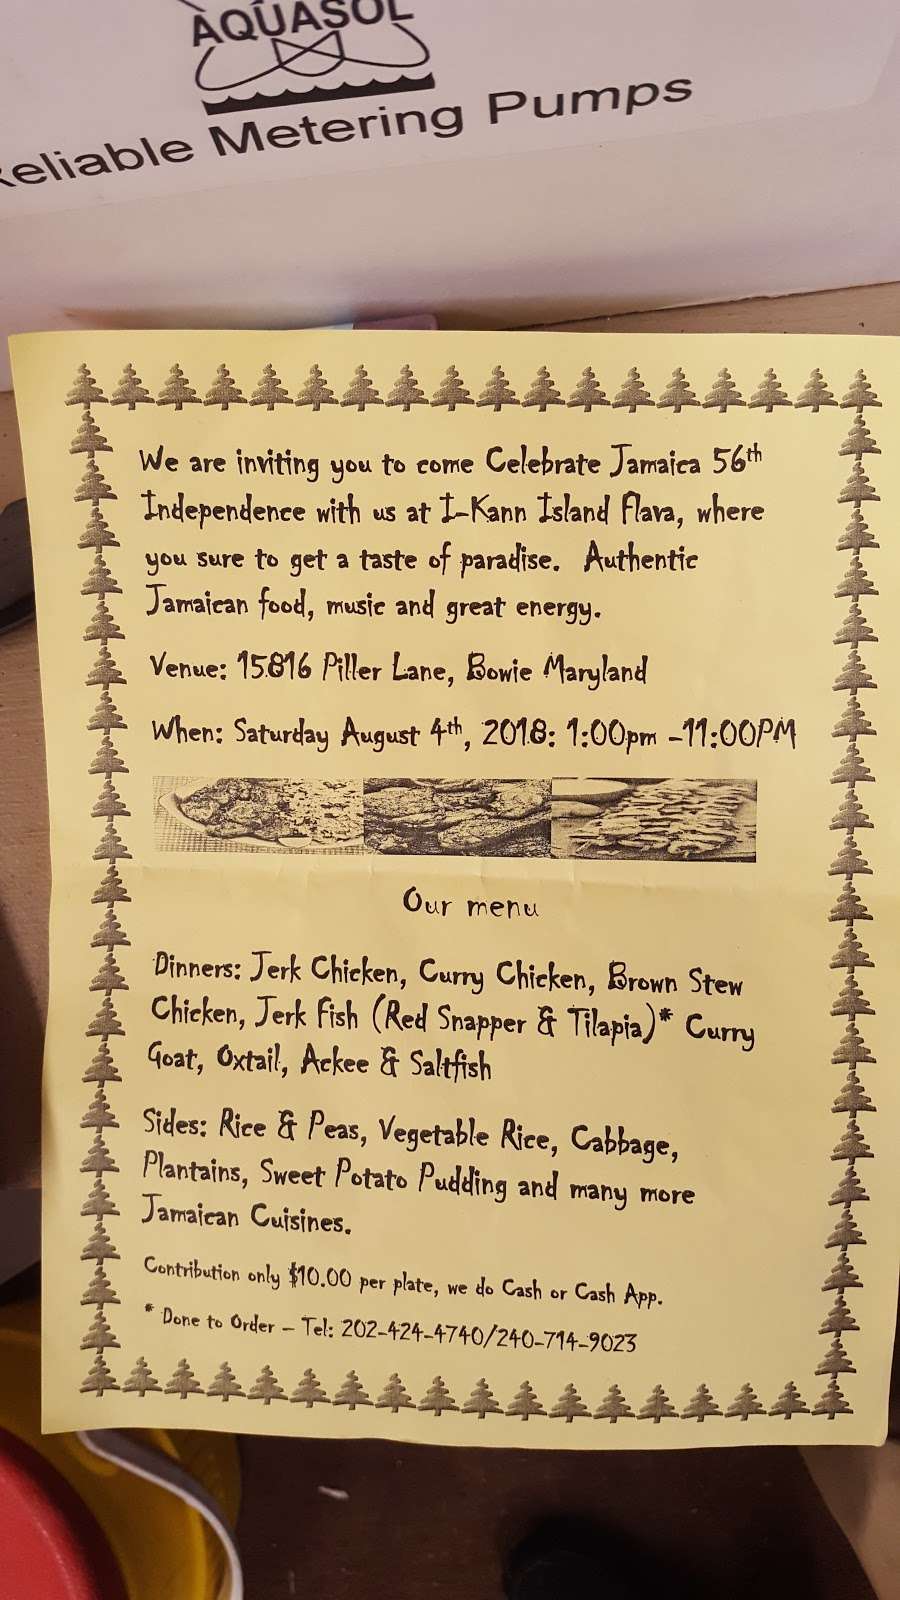 AQUASOL
Reliable Metering Pumps
We are inviting you to come Celebrate Jamaica 56th
Independence with us at I-Kann Island Flava, where
you sure to get a taste of paradise. Authentic
Jamaican food, music and great energy.
Venue: 15816 Piller Lane, Bowie Maryland
When: Saturday August 4th, 2018: 1:00pm -11:00PM
Our menu
Dinners: Jerk Chicken, Curry Chicken, Brown Stew
Chicken, Jerk Fish (Red Snapper & Tilapia)* Curry
Goat, Oxtail, Ackee & Saltfish
Sides: Rice & Peas, Vegetable Rice, Cabbage,
Plantains, Sweet Potato Pudding and many more
Jamaican Cuisines.
Contribution only $10.00 per plate, we do Cash or Cash App.
* Done to Order – Tel: 202-424-4740/240-714-9023